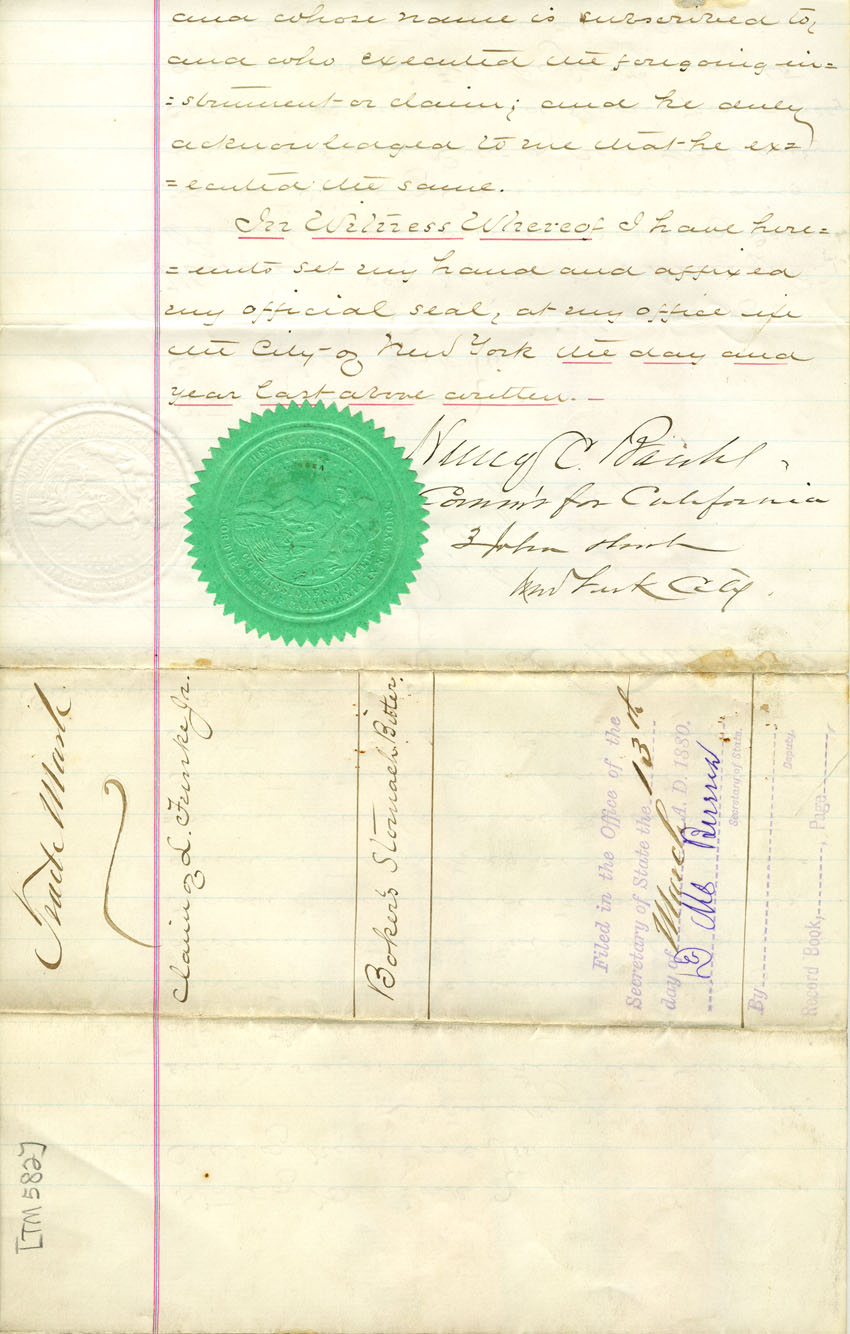 and whose name is subscribed to,
and who executed the foregoing in=
=strument or claim; and he duly
acknowledged to me that he ex=
=ecuted the same.
In Witness Whereof I have here=
=unto set my hand and affixed
my official seal, at my office in
the City of New York the day and
year last above written. —
C.
Comm'r for California
3 John Street
New York City.
Trade Mark
Claim of L. Funke Jr.
Boker's Stomach Bitter.
Filed in the Office of the
Secretary of State the 13th
day of March A. D. 1880.
Secretary of State.
By
Deputy,
Record Book, , Page
[TM 582]